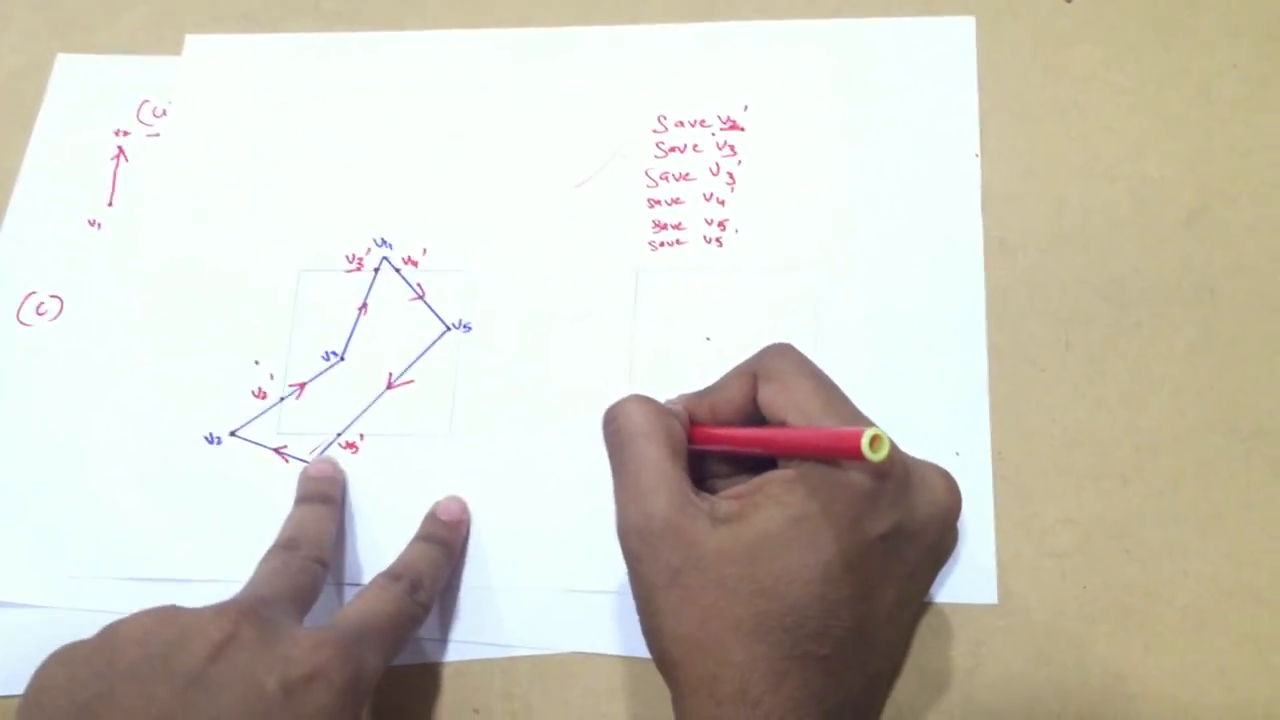 (a)
v2
v1
(c)
Save v2'
Save v3
Save v3'
save v4'
save v5
save v5'
v4
v3'
v4'
v5
v3
v2'
v2
v5'